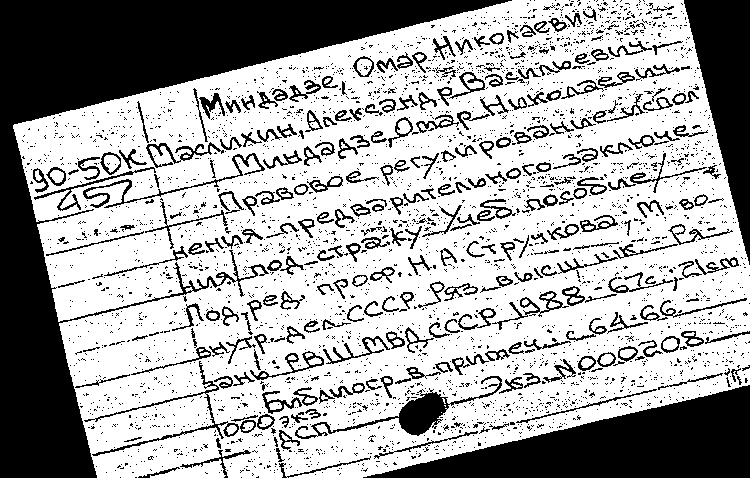 Миндадзе, Омар Николаевич
90-50К Маслихин, Александр Васильевич,
457
Миндадзе, Омар Николаевич.
Правовое регулирование испол
нения предварительного заключе-
ния под стражу. Учеб. пособие /
Под ред. проф. Н. А. Стручкова; М-во
внутр. дел СССР. Ряз. высш. шк. - Ря-
зань: РВШ МВД СССР, 1988. - 67с.; 21см
Библиогр в примеч.: с 64-66.
1000 экз.
ДСП Экз. N000208.